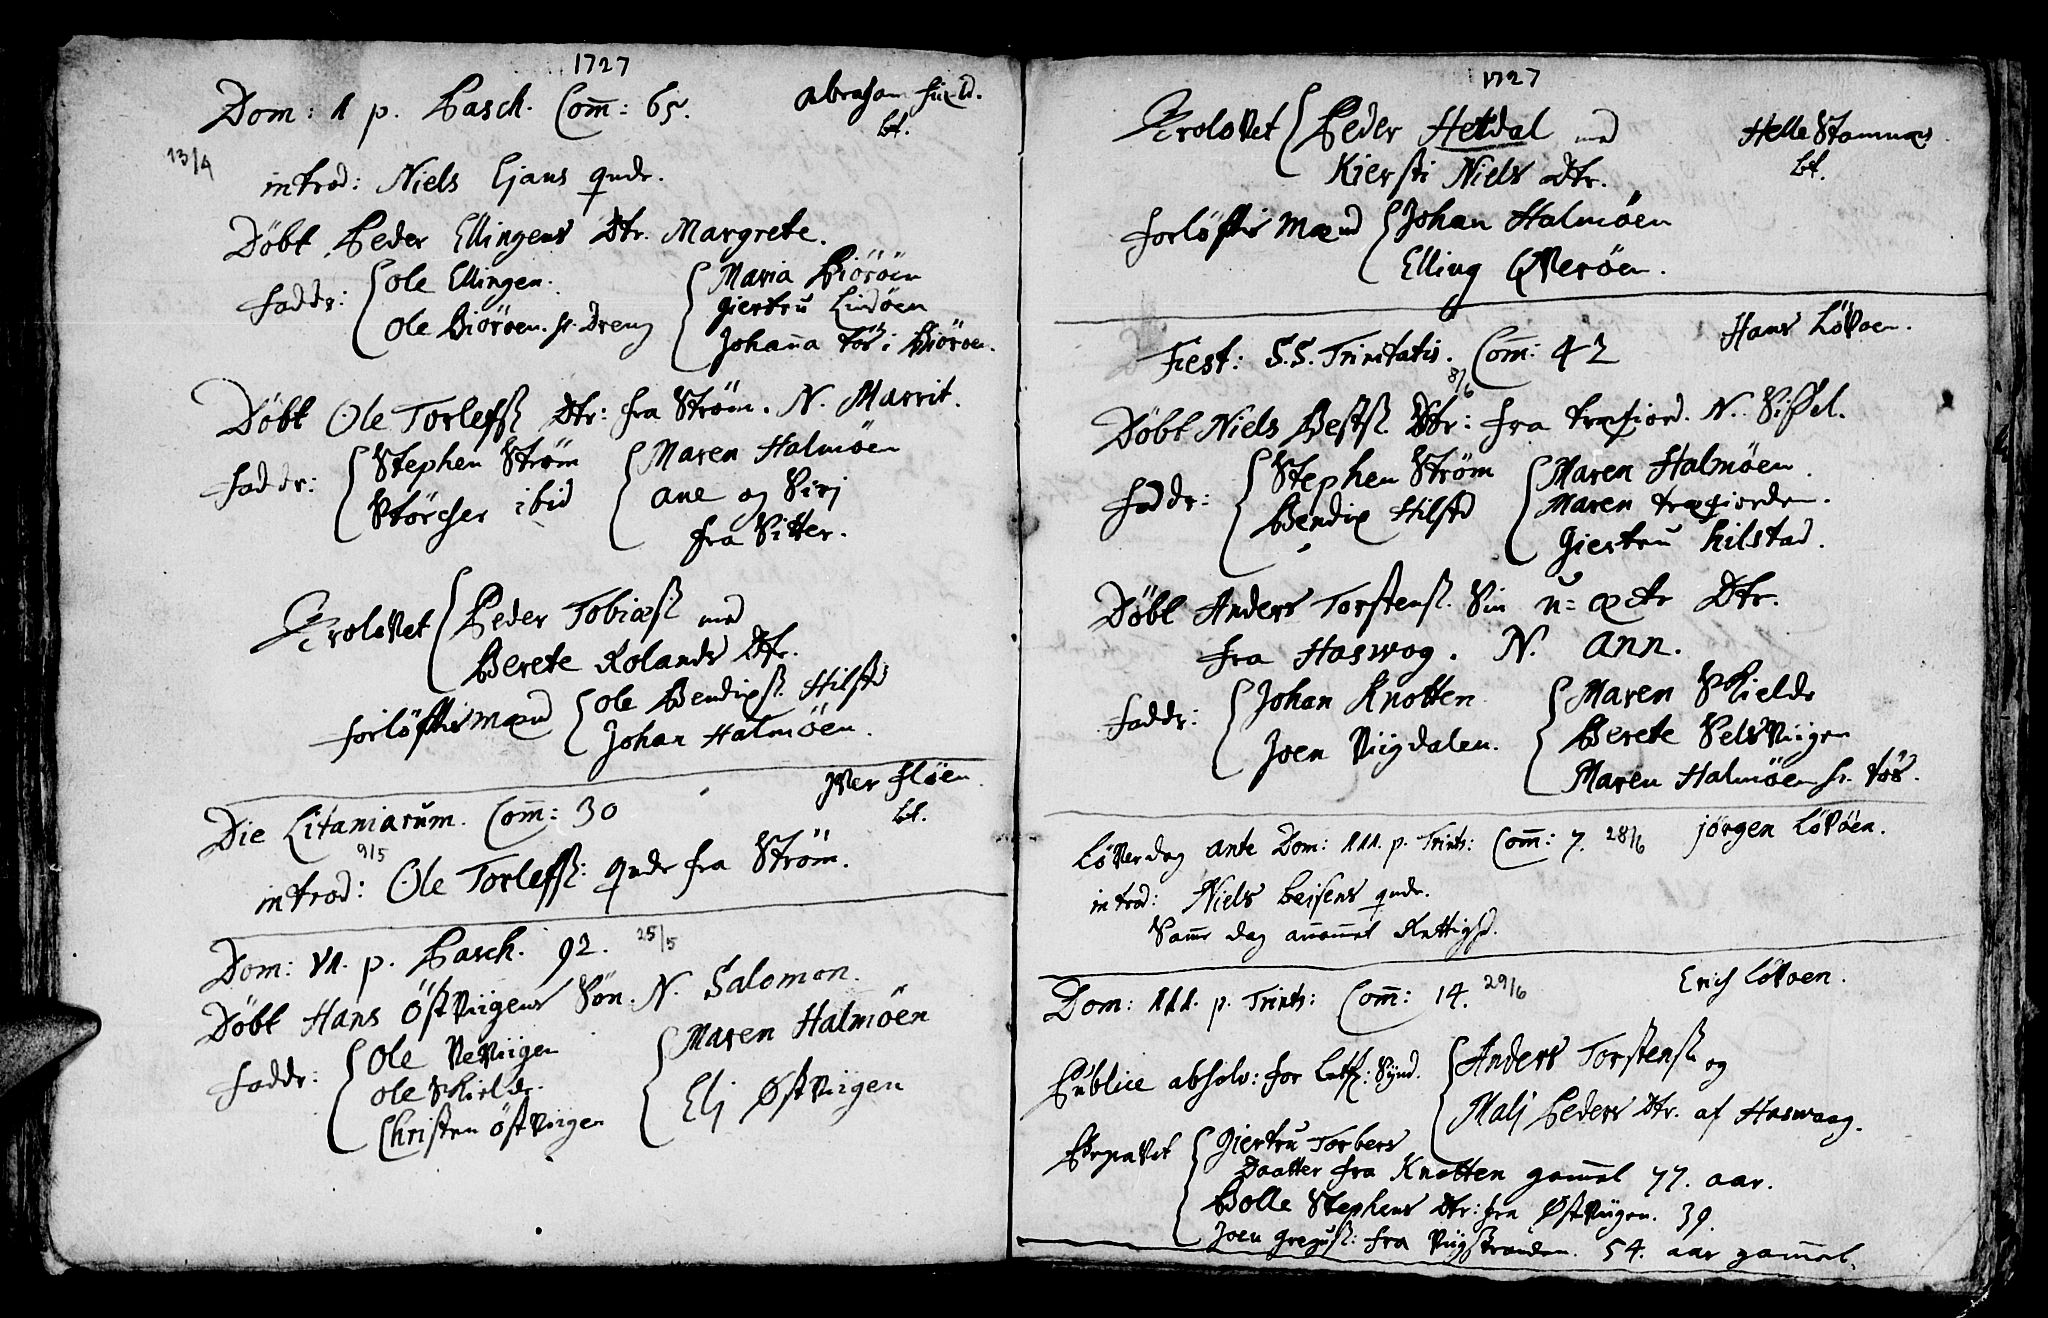 1727
Dom: 1 p. Pasch. Com̄: 65. Abraham
bt.
13/4
introd: Niels Ejans qvdr.
Döbt Peder Ellingens Dtr. Margrete.
faddr: Ole Ellingen. Maria Biöröen
Ole Biöröen. hs. Dreng Giertru Lindöen
Johan̄a tös i Biöröen.
Döbt Ole Torlefsß Dtr: fra Ström. N. Marrit.
faddr: Stephen Ström Maren Halmöen
Störcher ibid ane og Sirj
fra Sitter.
Trolovet Peder Tobiæsß med
Berete Rolands Dtr.
forlöftis mænd Ole Bendixsß. Hilstd
Johan Halmöen.
Die Litaniarum. Com̄: 30 Iver fløen.
bt.
9/5
introd: Ole Torlefsß: qvdr fra Ström.
Dom: VI. p. Pasch. 92. 25/5
Döbt Hans Östviigens Sön. N. Salomon.
faddr: Ole Veviigen Maren Halmöen
Ole Skields. Elj Østviigen
Christen östviigen
1727
Trolovet Peder Hetdal med Helle Stamnæs.
Kiersti Niels Dtr. bt.
forlöftis mænd Johan Halmöen
Elling Qverøen.
Fest: S.S. Trinitatis. Com̄: 42 Hans Lövöen.
8/6
Döbt Niels Bestsß. Dtr: fra træfiord. N. Sissel.
faddr: Stephen Ström Maren Halmöen.
Bendix Hilstd Maren træfiorden.
Giertru hilstad.
Döbt Anders Torstensß. Sin u=æcte Dtr.
fra Haswog. N. Ann.
faddr: Johan Knotten Maren Skields
Joen Viigdalen. Berete Selsviigen
Maren Halmöen hs. tös.
Löverdag ante Dom: III. p. Trinit: Com̄: 7. 28/6 Jörgen Lövöen.
introd: Niels Leisens qvdr.
Sam̄e dag
Dom: III. p. Trinit: Com̄: 14. 29/6 Erich Lövöen.
Publice absolv: for Letf: Sÿnd. Anders Torstensß og
Malj Peders Dtr. af Haswaag.
Begravet Giertru Torbers
Daatter fra Knotten gam̄el 77. aar.
Bolle Stephens Dtr: fra Østviigen. 39.
Joen Gregusß: fra Viigstranden. 54. aar gam̄el.